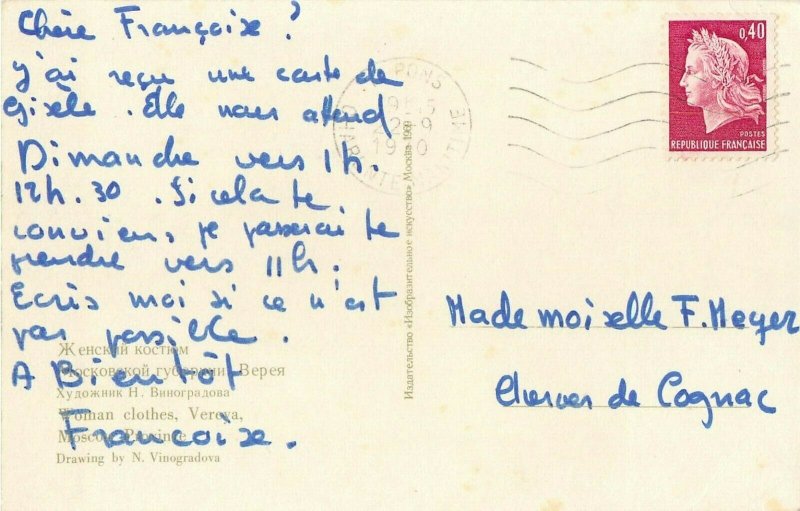 Chère Françoise !
J'ai reçu une carte de
Gisèle. Elle nous attend
Dimanche vers 1h.
12h.30. Si cela te
convien, je passerai te
prendre vers 11h.
Ecris moi si ce n'est
pas possible.
A Bientôt
Francoise.
Женский костюм
Московской губернии, Верея
Художник Н. Виноградова
Woman clothes, Vereya,
Moscow Province
Drawing by N. Vinogradova
Издательство «Изобразительное искусство» Москва 1969
PONS
22-9
CHARENTE MARITIME
0,40
POSTES
REPUBLIQUE FRANÇAISE
Mademoiselle F. Meyer
de Cognac